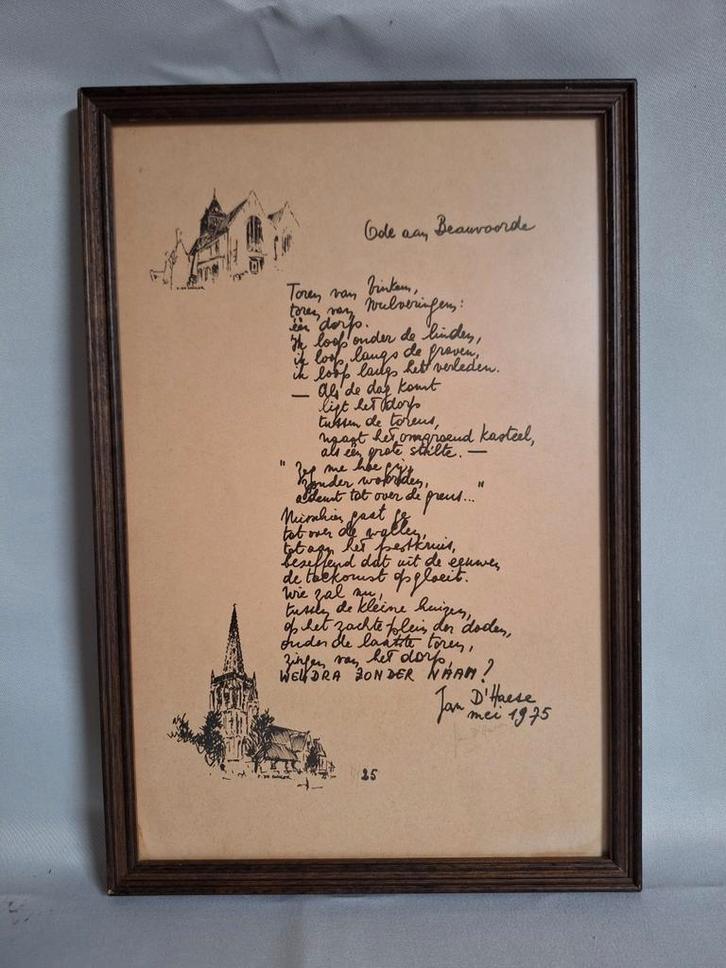 Ode aan Beauvoorde
Toren van Vinkem,
toren van Wulveringem:
één dorp.
Ik loop onder de linden,
ik loop langs de graven,
ik loop langs het verleden.
— Als de dag komt
ligt het dorp
tussen de torens,
naast het omgroend kasteel,
als één grote stilte. —
" Zeg me hoe gij,
zonder woorden,
ademt tot over de grens... "
Misschien gaat ge
tot over de wallen,
tot aan het pestkruis,
beseffend dat uit de eeuwen
de toekomst opgloeit.
Wie zal nu,
tussen de kleine huizen,
op het zachte plein der doden,
onder de laatste toren,
zingen van het dorp,
WELDRA ZONDER NAAM?
Jan D'Haese
mei 1975
25